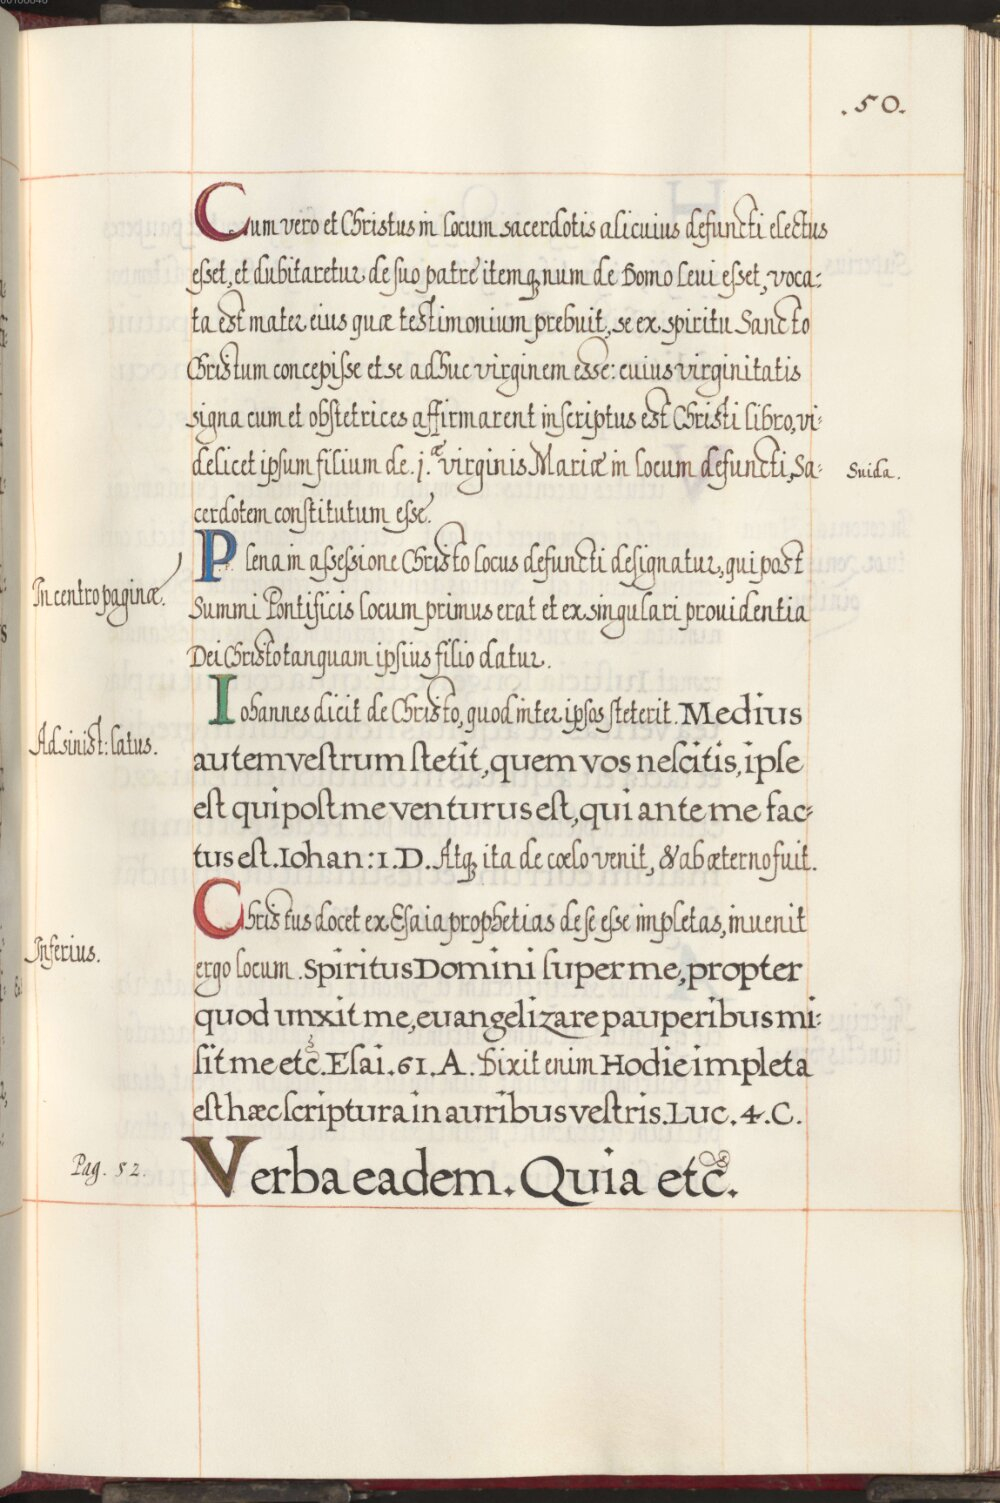 .50.
Cum vero et Christus in locum sacerdotis alicuius defuncti electus
esset, et dubitaretur de suo patre itemq; num de Domo Levi esset, voca:
ta est mater eius quæ testimonium prebuit, se ex spiritu Sancto
Christum concepisse et se adhuc virginem esse: cuius virginitatis
signa cum et obstetrices affirmarent inscriptus est Christi libro, vi:
delicet ipsum filium de. j.æ virginis Mariæ in locum defuncti, Sa:
Suida.
cerdotem constitutum esse.
Plena in assessione Christo locus defuncti designatur, qui post
In centro paginæ.
Summi Pontificis locum primus erat et ex singulari providentia
Dei Christo tanquam ipsius filio datur.
Iohannes dicit de Christo, quod inter ipsos steterit. Medius
Ad sinist: latus.
autem vestrum stetit, quem vos nescitis, ipse
est qui post me venturus est, qui ante me fac:
tus est. Iohan: 1. D. Atq; ita de cœlo venit, & ab æterno fuit.
Christus docet ex Esaia prophetias de se esse impletas, invenit
Inferius.
ergo locum. Spiritus Domini super me, propter
quod unxit me, euangelizare pauperibus mi:
sit me etc̃. Esai. 61. A. Dixit enim Hodie impleta
est hæc scriptura in auribus vestris. Luc. 4. C.
Pag. 52.
Verba eadem. Quia etc̃.